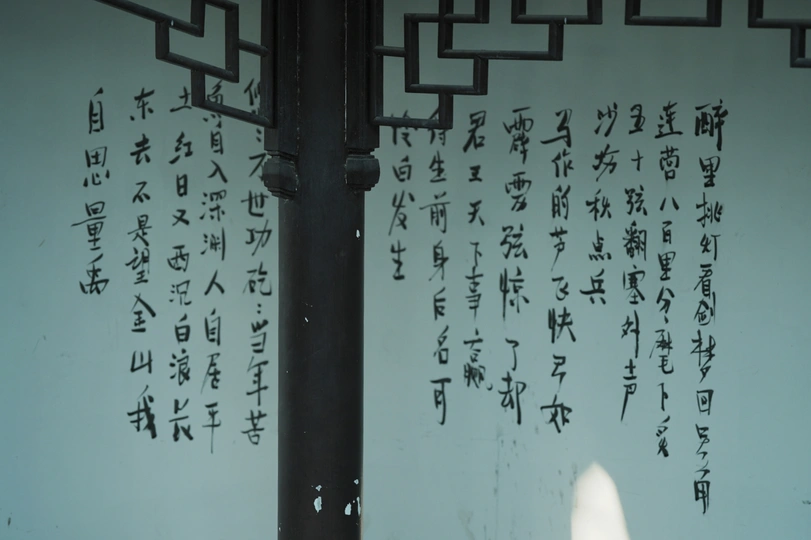 醉里挑灯看剑梦回吹角
连营八百里分麾下炙
五十弦翻塞外声
沙场秋点兵
马作的芦飞快弓如
霹雳弦惊了却
君王天下事赢
得生前身后名可
怜白发生
悠々万世功矻々当年苦
鱼自入深渊人自居平
土红日又西沉白浪长
东去不是望金山我
自思量禹